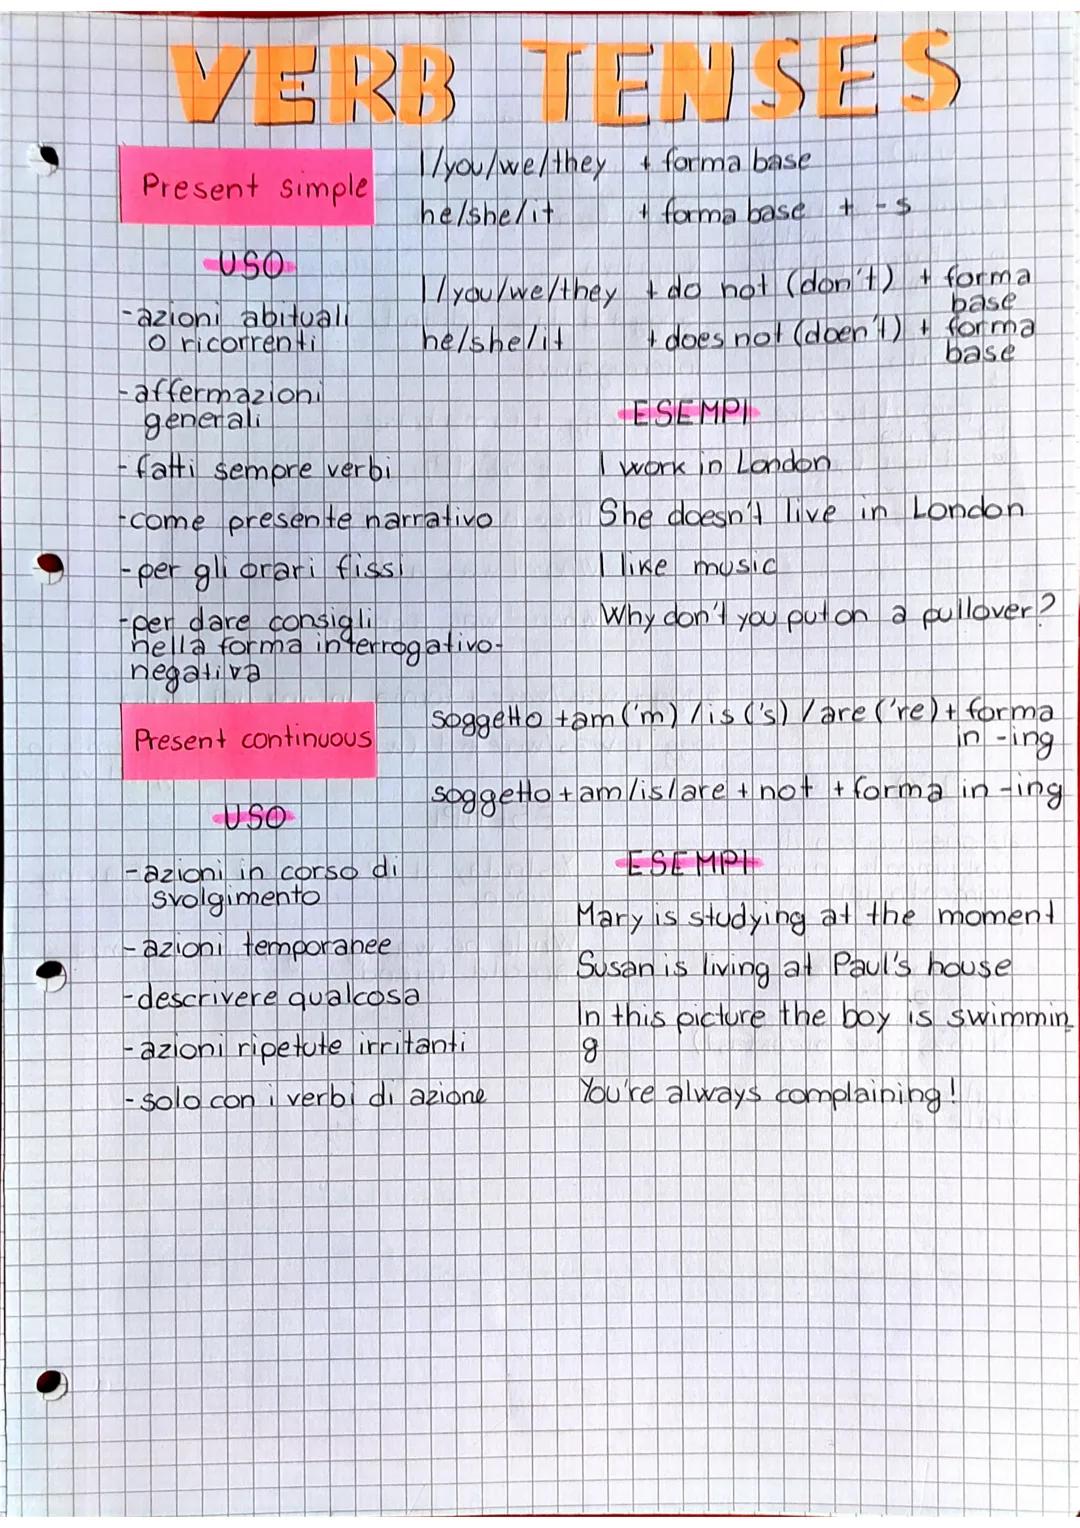 VERB TENSES
Present simple
I/you/we/they + forma base
he/she/it + forma base + -s
USO
-azioni abituali
o ricorrenti
-affermazioni
generali
-fatti sempre verbi
-come presente narrativo
-per gli orari fissi
-per dare consigli
nella forma interrogativo-
negativa
I/you/we/they + do not (don't) + forma
base
he/she/it + does not (doen't) + forma
base
ESEMPI
I work in London
She doesn't live in London
I like music
Why don't you put on a pullover?
Present continuous
soggetto +am ('m) /is ('s) /are ('re) + forma
in -ing
soggetto + am/is/are + not + forma in -ing
USO
-azioni in corso di
svolgimento
-azioni temporanee
-descrivere qualcosa
-azioni ripetute irritanti
-solo con i verbi di azione
ESEMPI
Mary is studying at the moment
Susan is living at Paul's house
In this picture the boy is swimmin
g
You're always complaining!